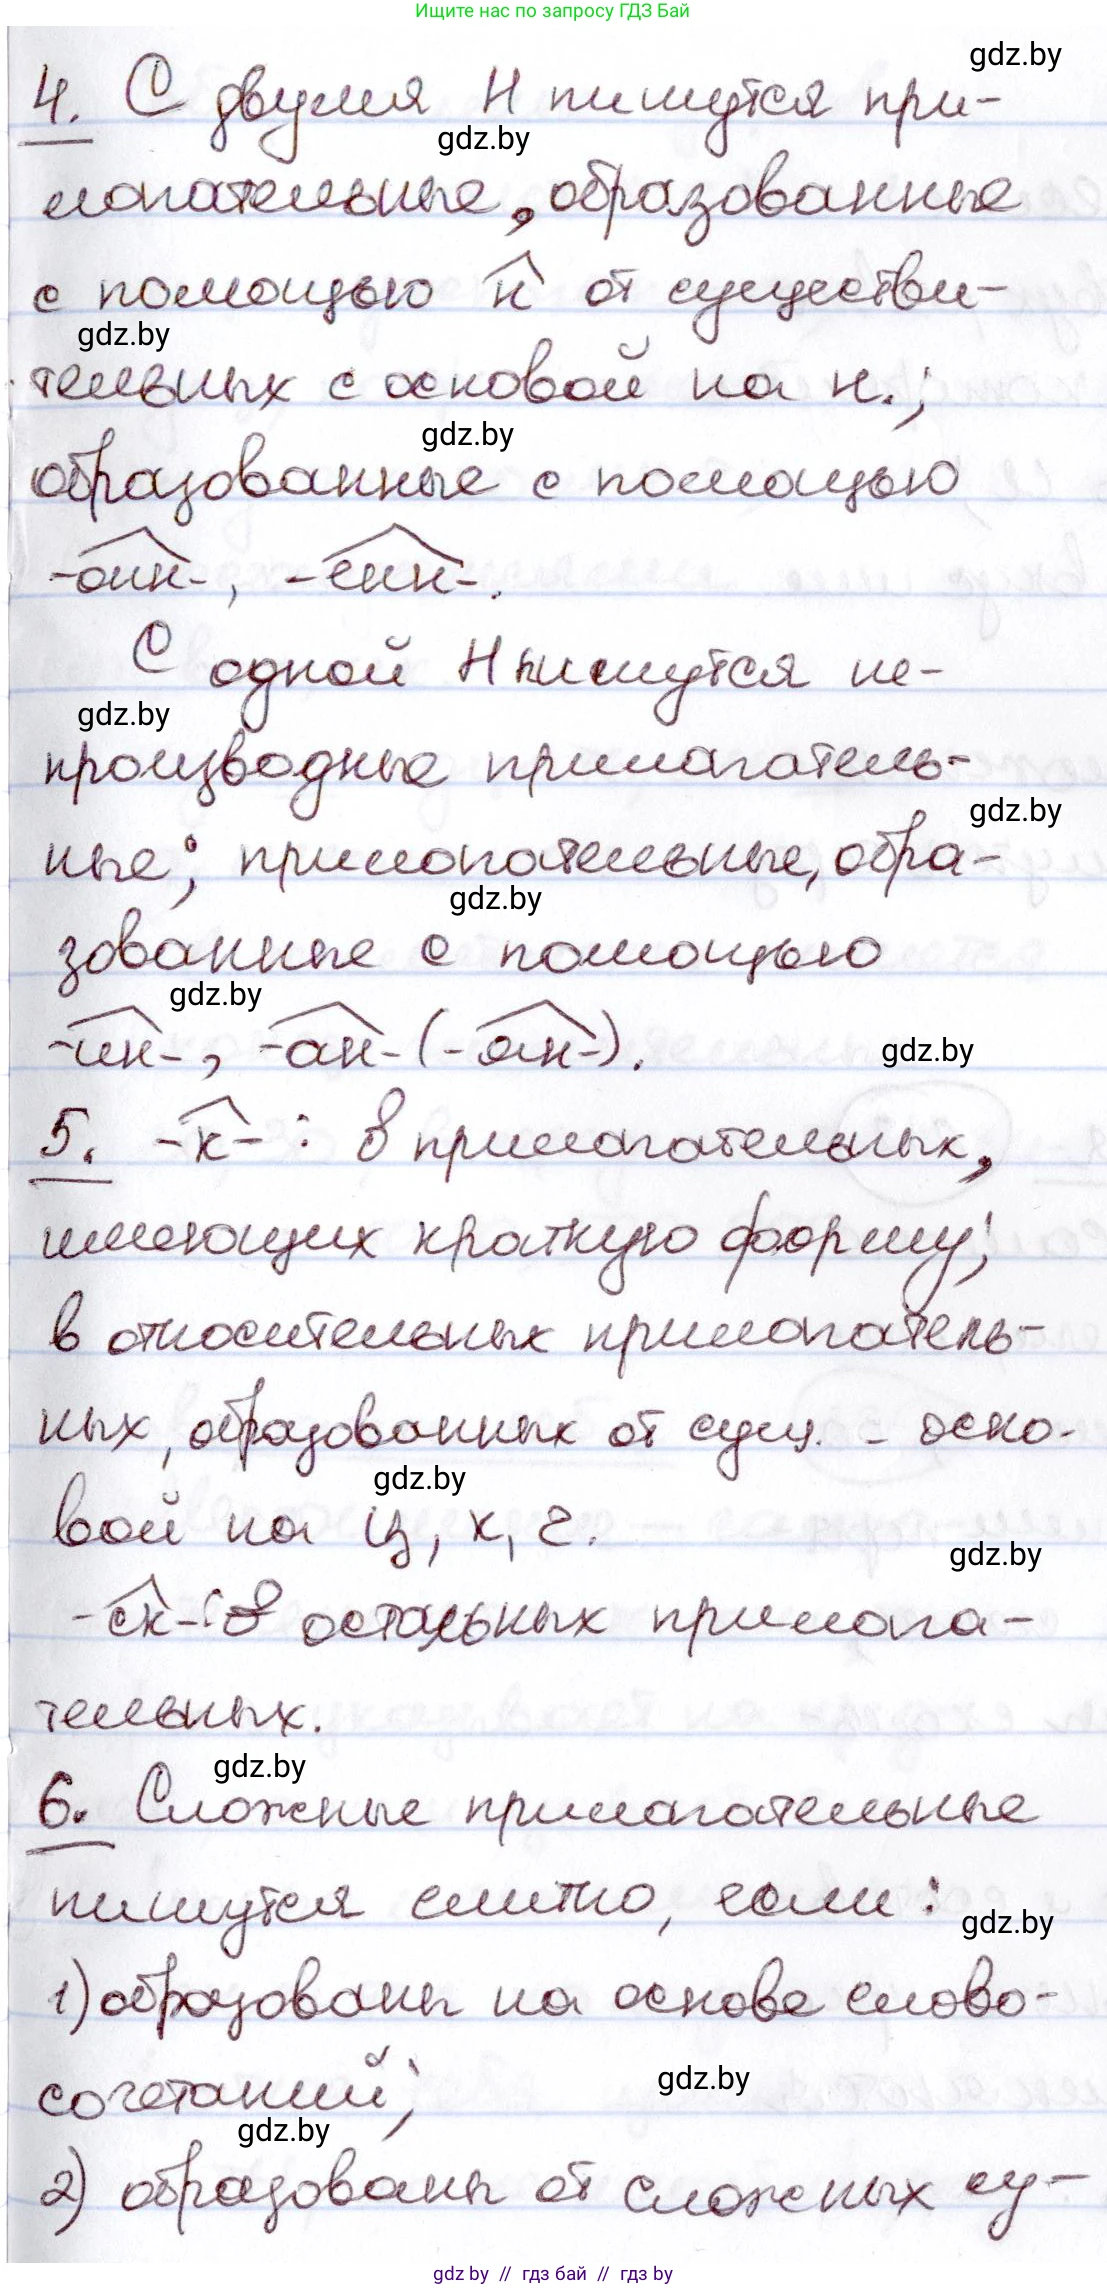 Ищите нас по запросу ГДЗ Бай
gdz.by
4. С двумя Н пишутся при-
gdz.by
лагательные, образованные
с помощью н от существи-
gdz.by
тельных с основой на н.;
gdz.by
образованные с помощью
-онн-, -енн-.
С одной Н пишутся не-
gdz.by
производные прилагатель-
gdz.by
ные; прилагательные, обра-
gdz.by
зованные с помощью
gdz.by
-ин-, -ан- (-ян-).
gdz.by
5. -к- : в прилагательных,
имеющих краткую форму;
в относительных прилагатель-
ных, образованных от сущ. - осно-
gdz.by
вой на ц, к, г.
gdz.by
-ск-: в остальных прилага-
тельных.
gdz.by
6. Сложные прилагательные
пишутся слитно, если:
gdz.by
1) образованы на основе слово-
сочетаний;
gdz.by
gdz.by
2) образованы от сложных су-
gdz.by // гдз бай // гдз by